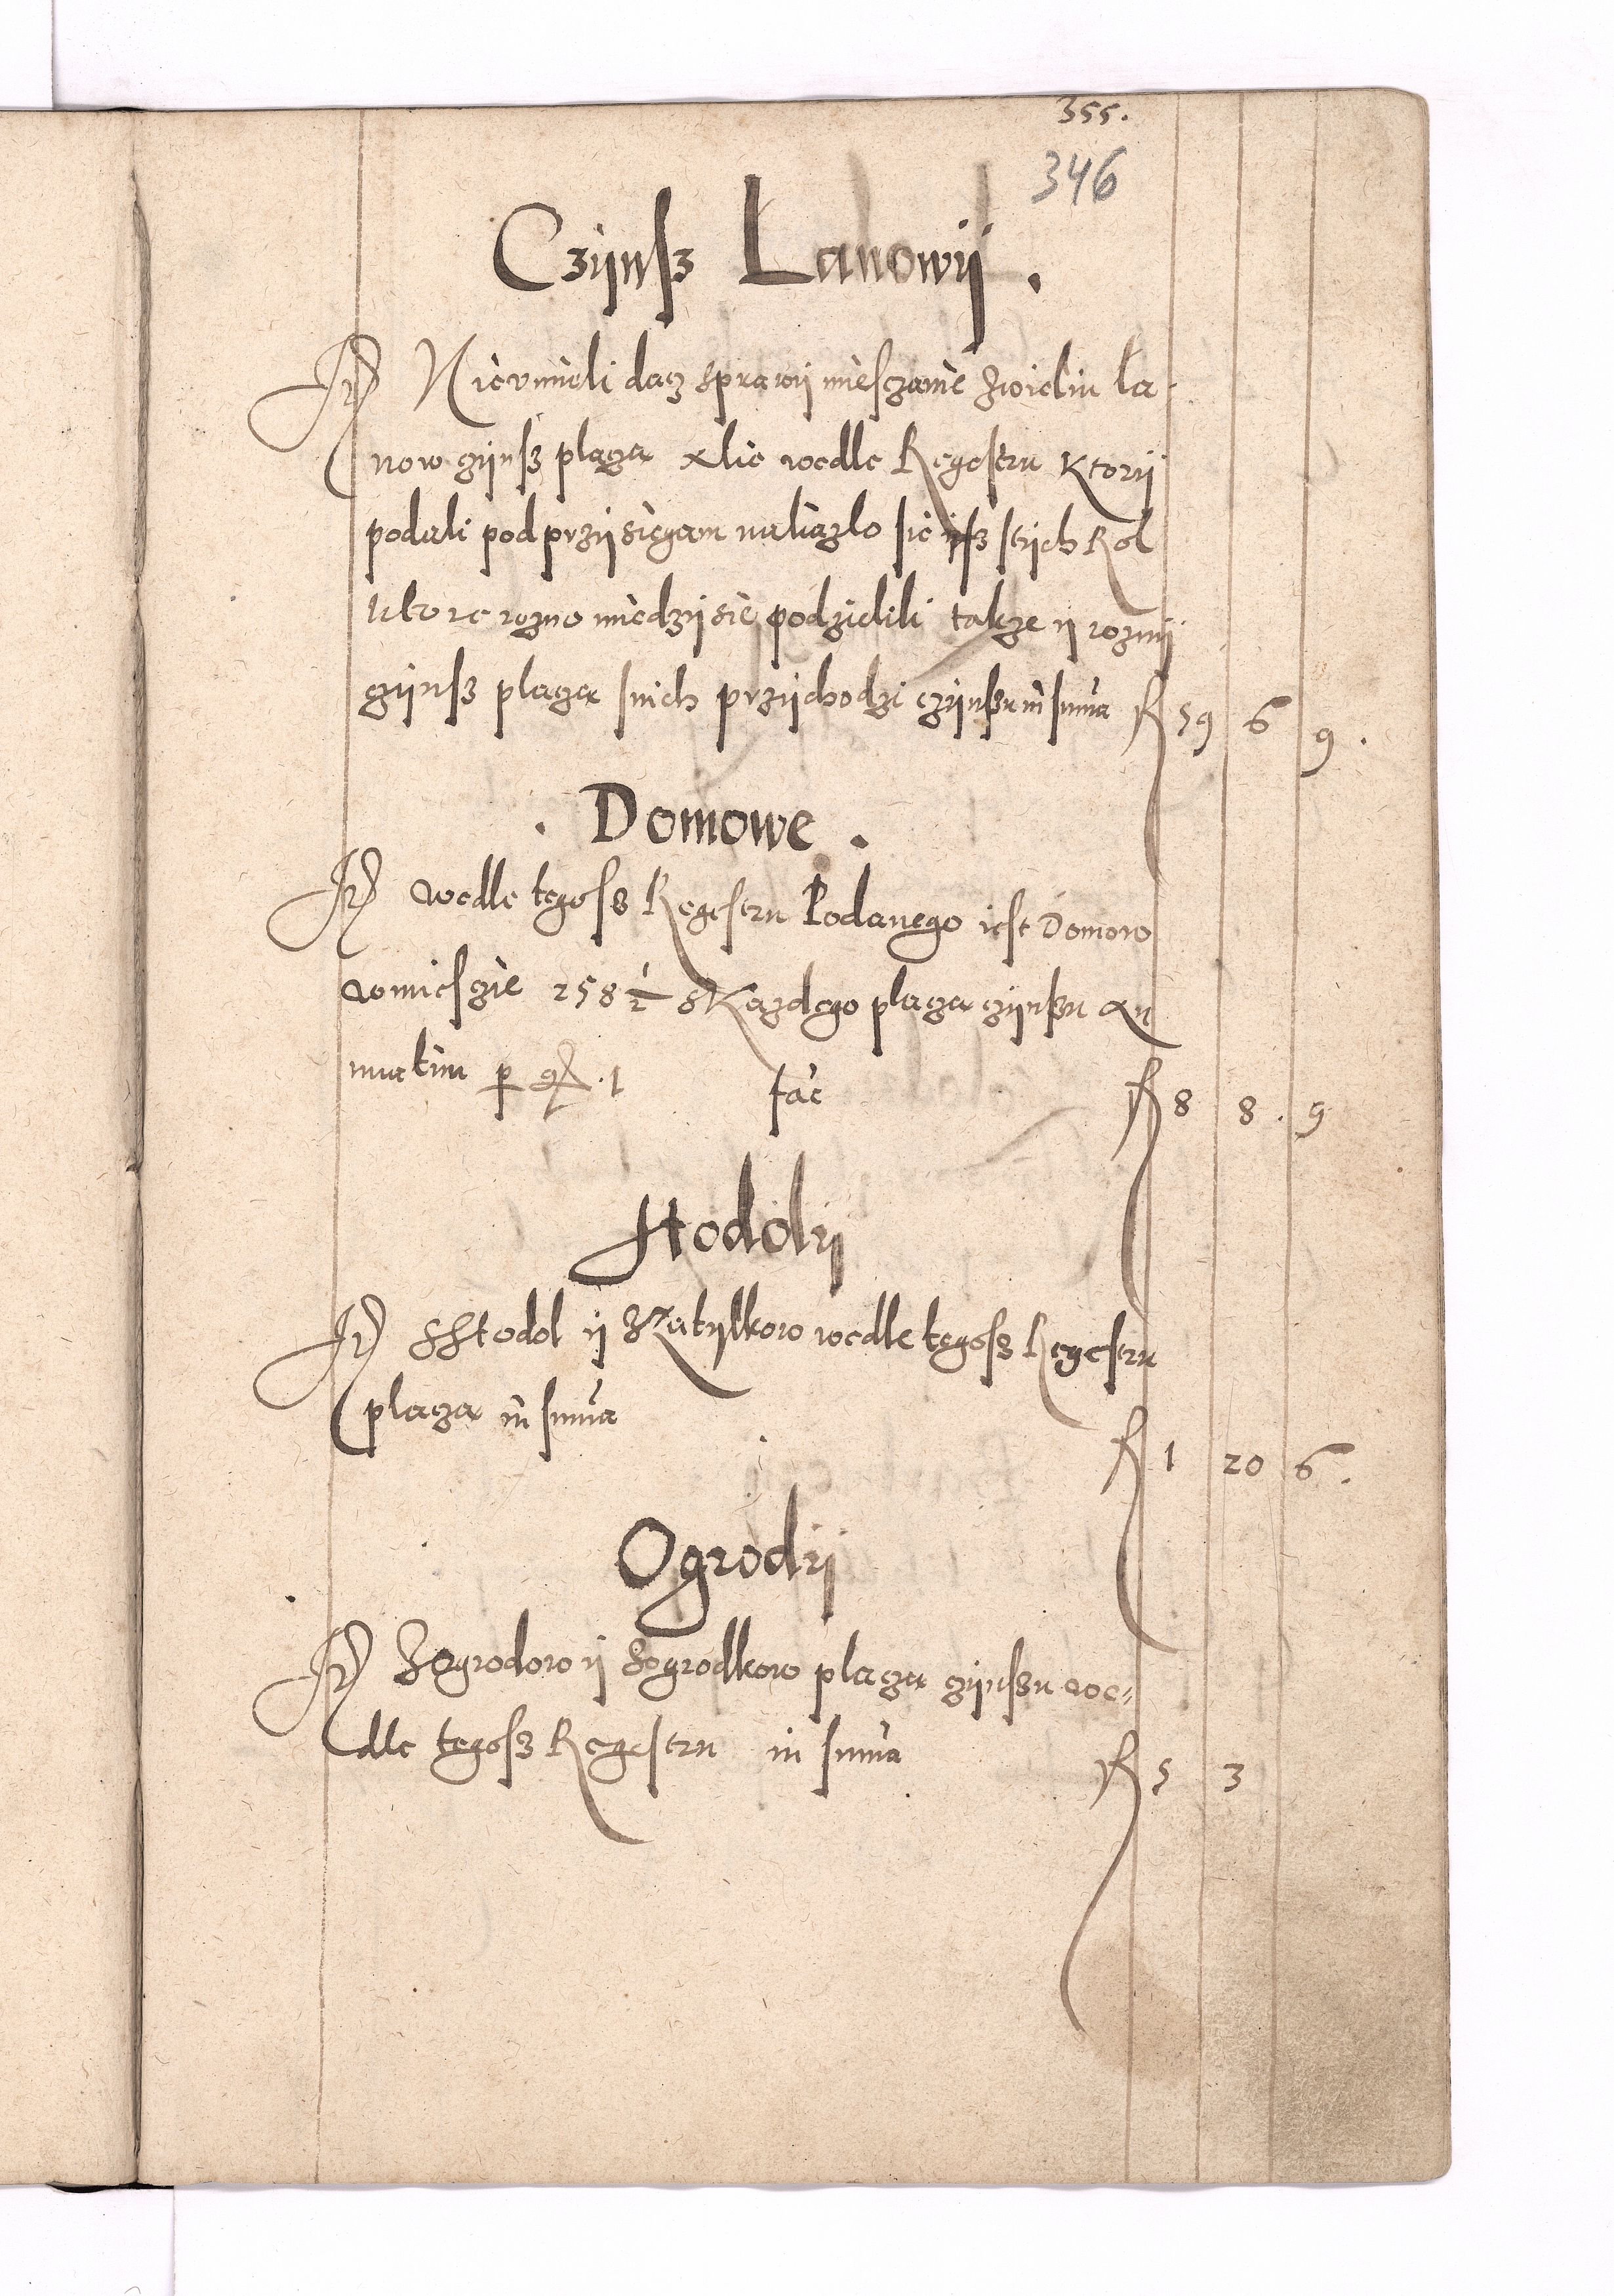 355.
346
Czijnsz Lanowij .
It Nieumieli dacz sprawij miesczanie zwieliu la-
now czijnsz placza Alie wedle Regestru Ktorij
podali pod przijsiegam nalazlo sie isz stijch Rol
Ktore rozno miedzij sie podzielili takze ij roznij
czijnsz placza snich przijchodzi czijnszu in suma R 59 6 9 .
. Domowe .
It wedle tegosz Regestru Podanego iest Domow
wmiesczie 258 1/2 sKazdego placza czijnszu An
nuatim p 1 fac R 8 8 . 9
Stodolij
It SStodol ij Zatijlkow wedle tegosz Regestru
placza in suma
R 1 20 6 .
Ogrodij
It Zogrodow ij Zogrodkow placza czijnszu we=
dle tegosz Regestru in suma R 5 3